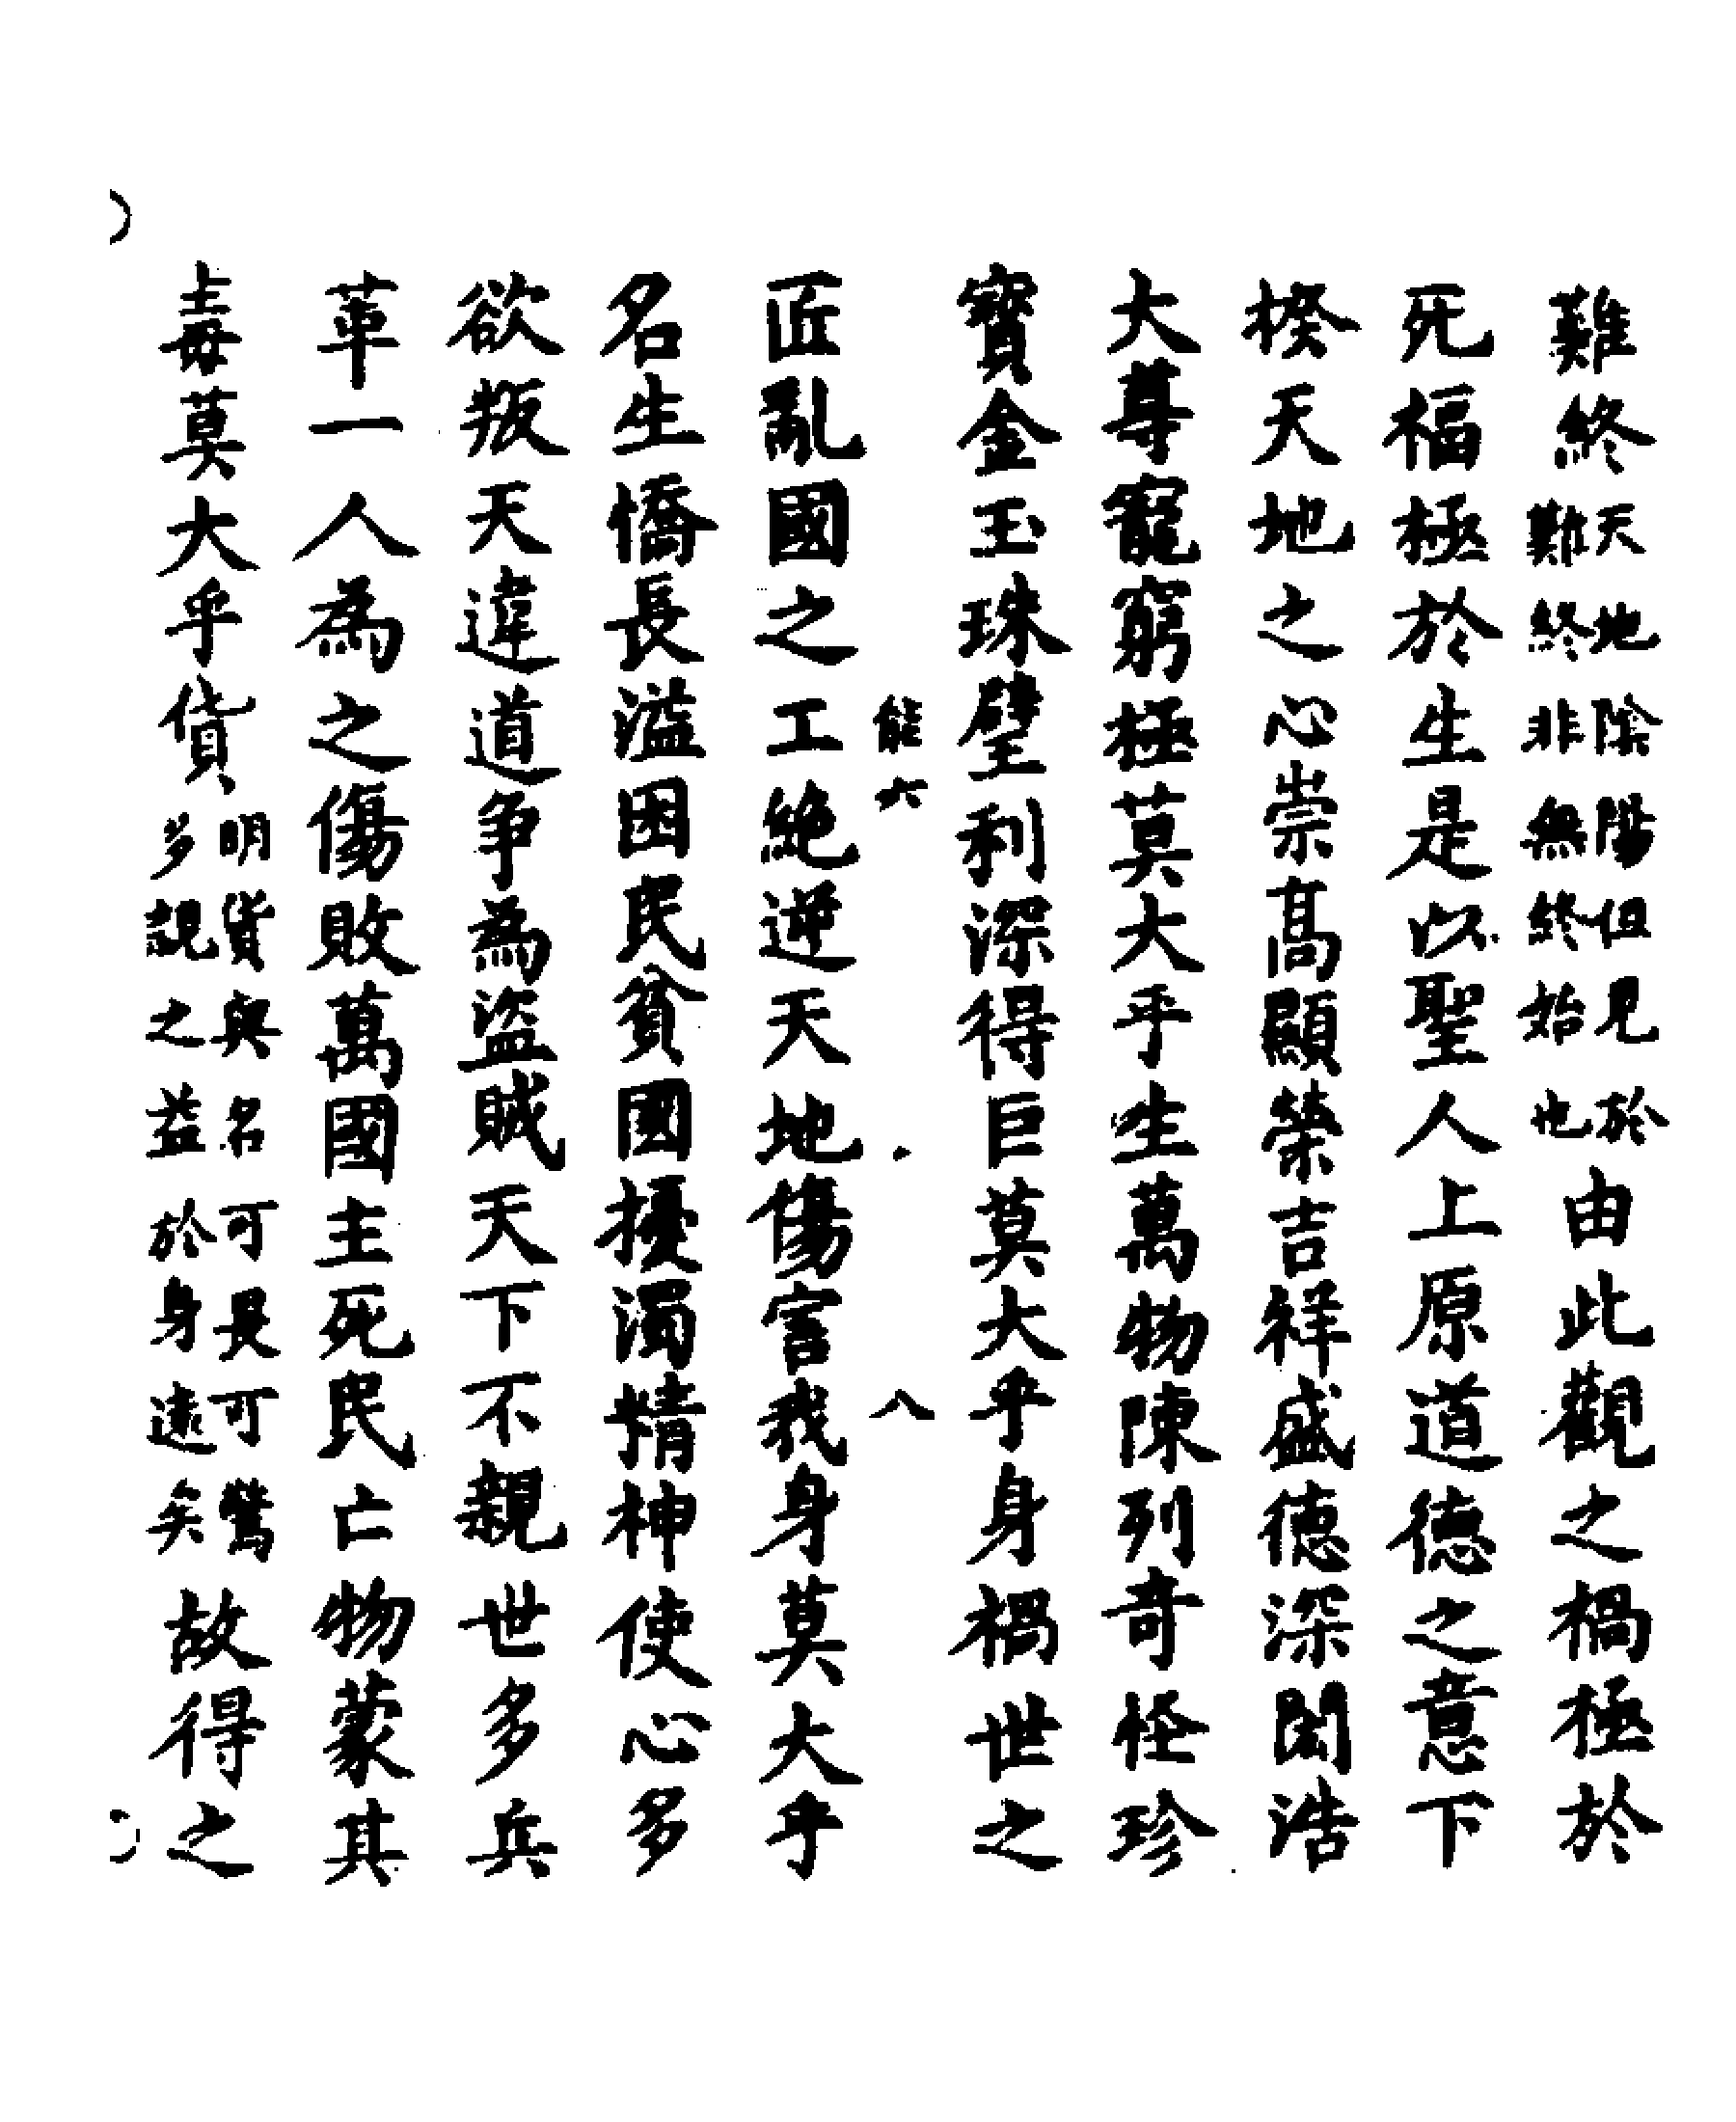 難終天地陰陽但見於難終非無終始也由此觀之禍極於
死福極於生是以聖人上原道德之意下
揆天地之心崇高顯榮吉祥盛德深閎浩
大尊寵窮極莫大乎生萬物陳列奇怪珍
寶金玉珠璧利深得巨莫大乎身禍世之
能六 八
匠亂國之工絶逆天地傷害我身莫大乎
名生憍長溢困民貧國擾濁精神使心多
欲叛天違道爭為盜賊天下不親世多兵
革一人為之傷敗萬國主死民亡物蒙其
毒莫大乎貨明貨與名可畏可驚多説之益於身遠矣故得之